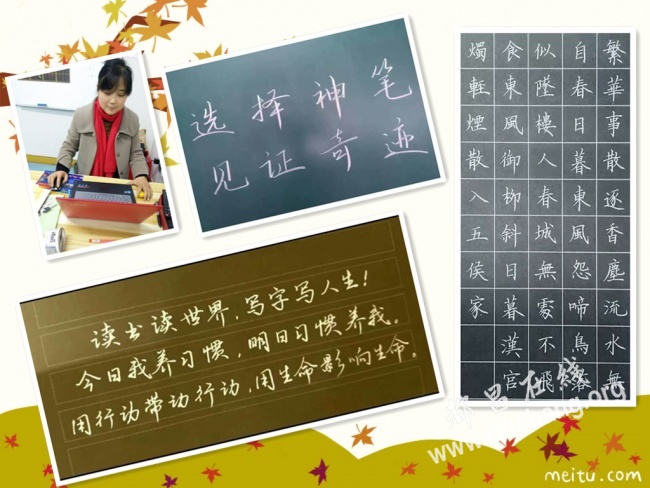 选择神笔
见证奇迹
读书读世界,写字写人生!
今日我养习惯,明日习惯养我。
用行动带动行动,用生命影响生命。
繁華事散逐香塵流水無
自春日暮東風怨啼鳥落
似墜樓人春城無處不飛
食東風御柳斜日暮漢宮
燭輕煙散入五侯家
昌在线
meitu.com